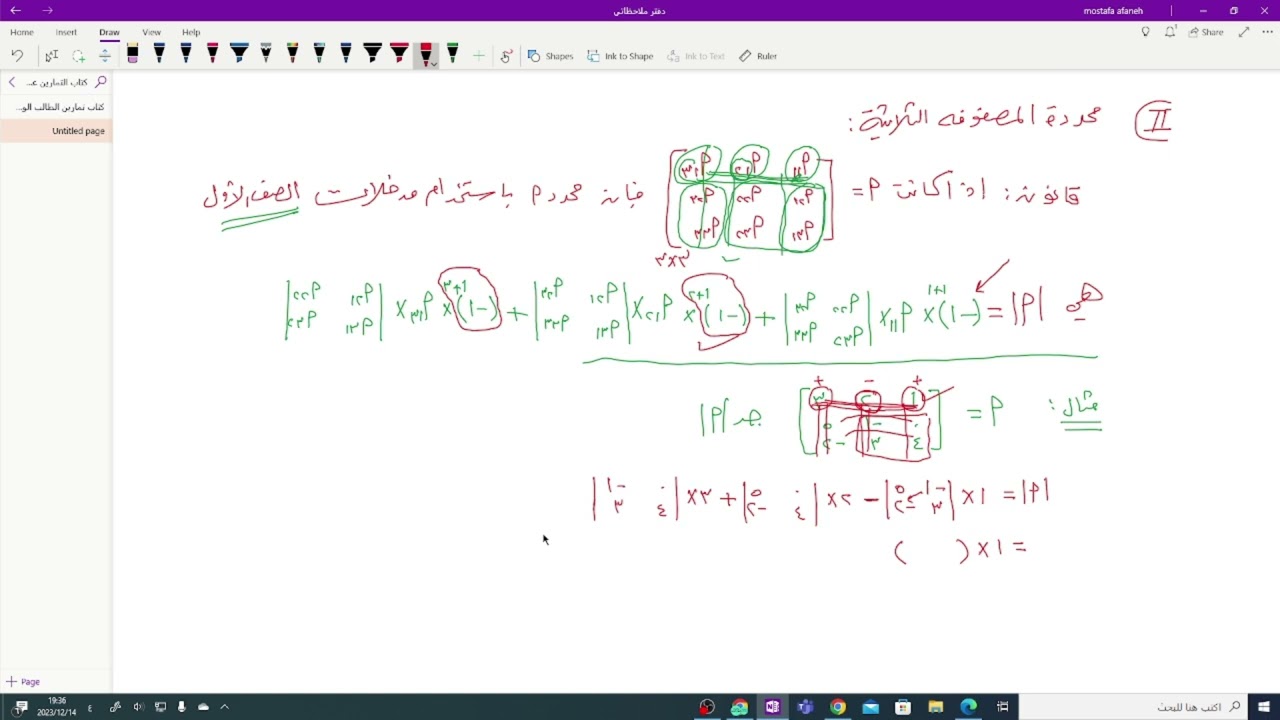 دفتر ملاحظاتي
mostafa afaneh
Home Insert Draw View Help
Share
Shapes Ink to Shape Ink to Text Ruler
كتاب التمارين عـ...
كتاب تمارين الطالب الو...
Untitled page
II محددة المصفوفه الثلاثية:
قانون: اذا كانت م = [م١١ م١٢ م١٣
م٢١ م٢٢ م٢٣
م٣١ م٣٢ م٣٣] فإن محدد م باستخدام مدخلات الصف الأول
٣×٣
هي |م| = (-١)^١+١ × م١١ × |م٢٢ م٢٣ م٣٢ م٣٣| + (-١)^١+٢ × م١٢ × |م٢١ م٢٣ م٣١ م٣٣| + (-١)^١+٣ × م١٣ × |م٢١ م٢٢ م٣١ م٣٢|
+ - +
مثال: م = [١ ٢ ٣
٠ -١ ٥
٤ ٣ -٢] جد |م|
|م| = ١× |-١ ٥ ٣ -٢| - ٢× |٠ ٥ ٤ -٢| + ٣× |٠ -١ ٤ ٣|
= ١× ( )
Page
19:36
2023/12/14
ع
اكتب هنا للبحث